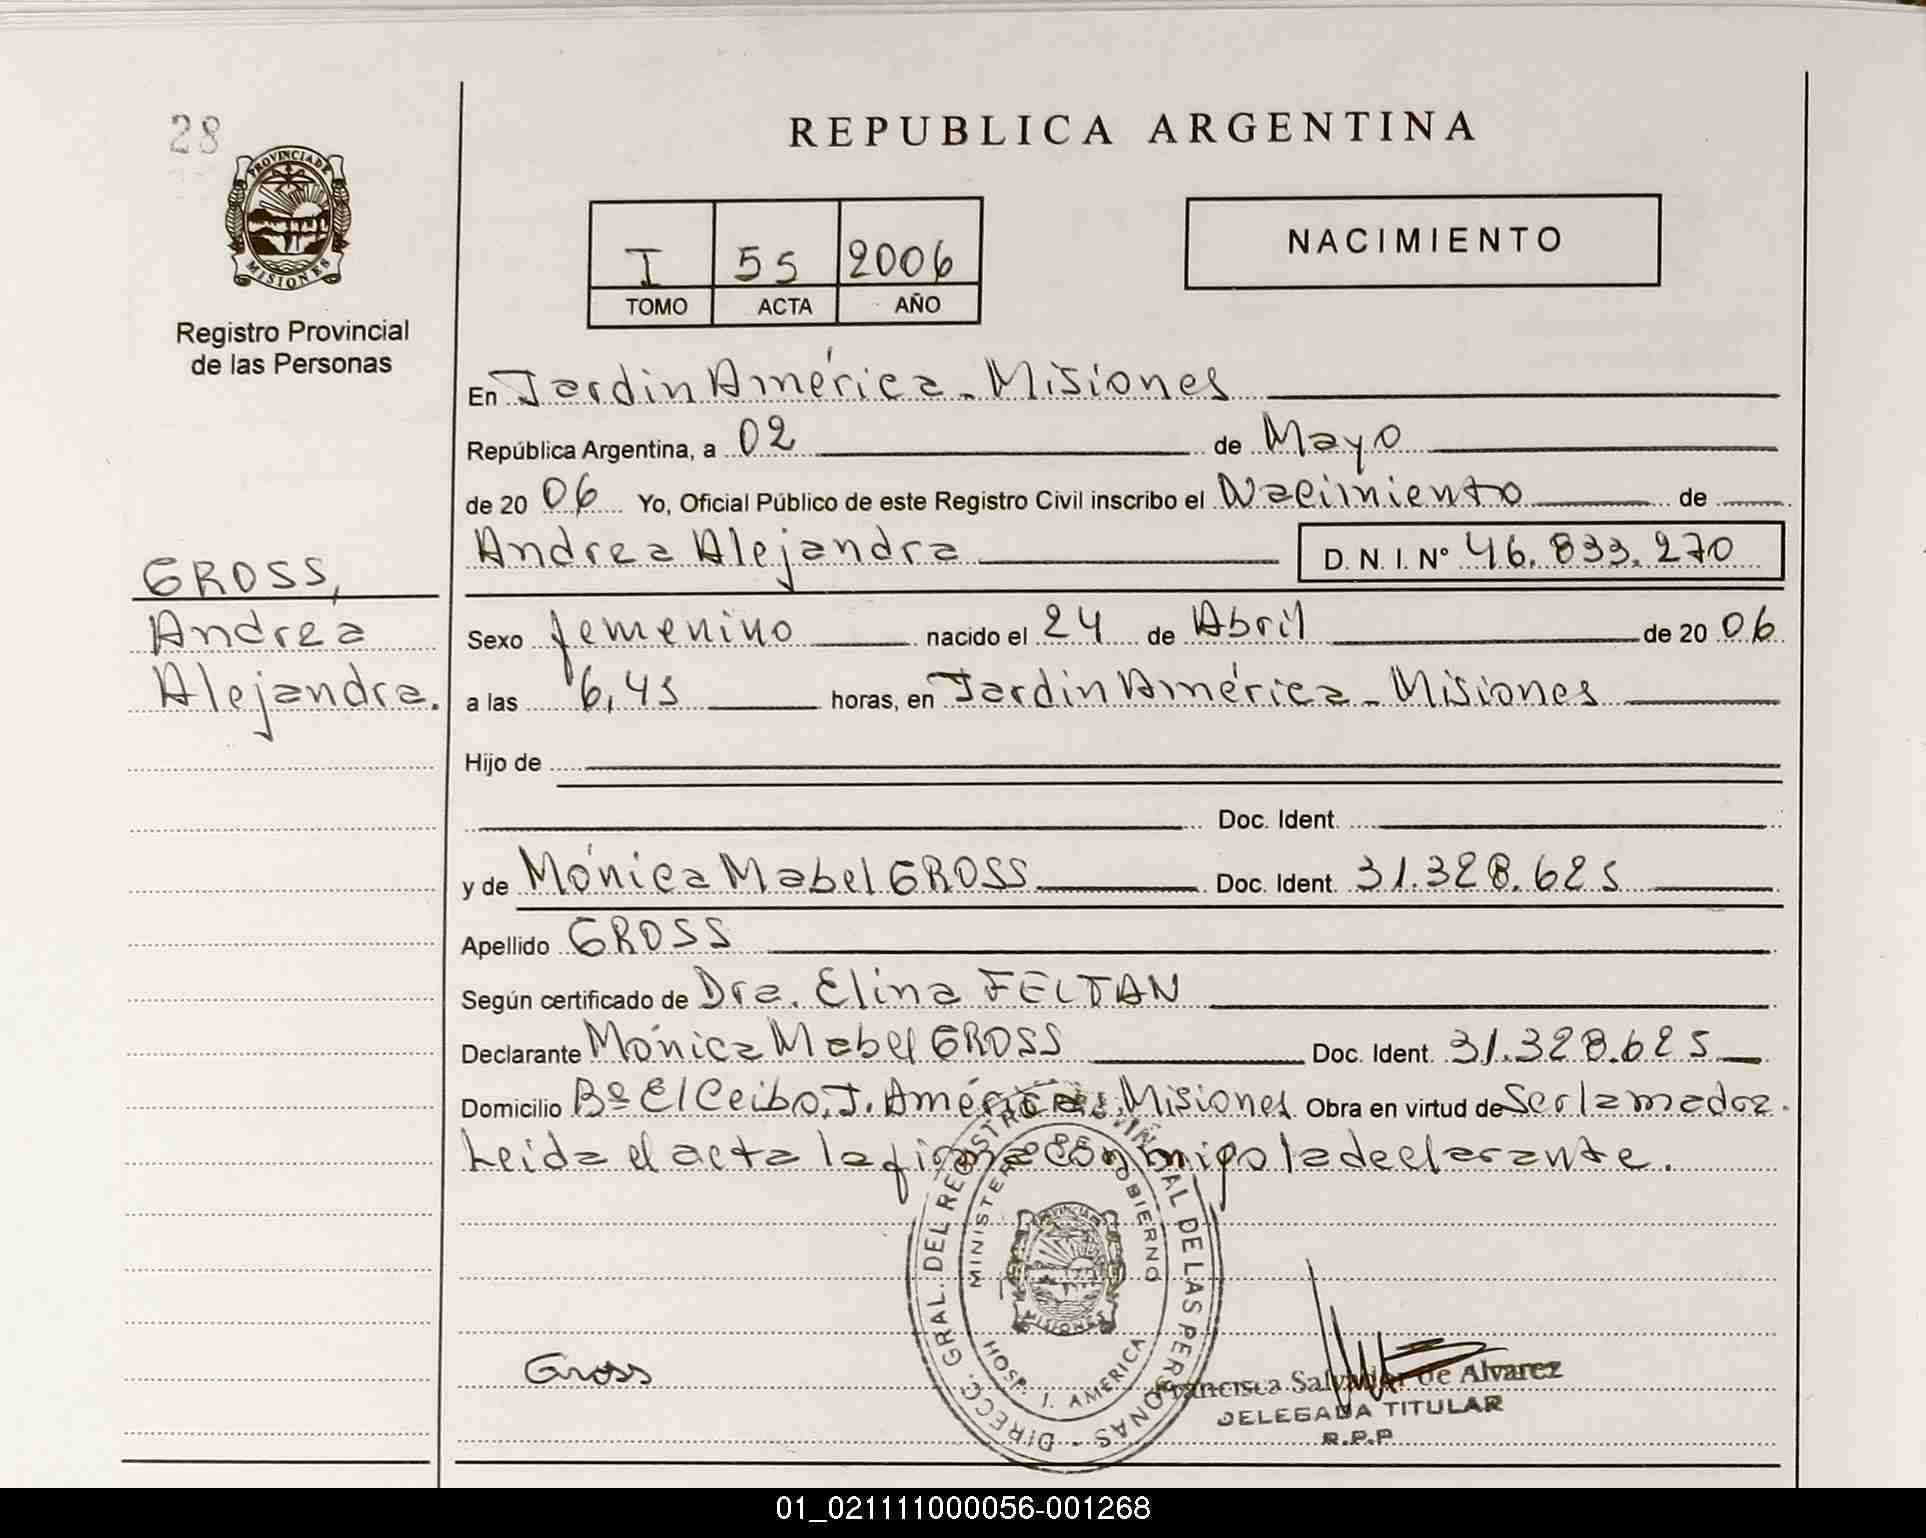 28
PROVINCIA DE
MISIONES
Registro Provincial
de las Personas
GROSS,
Andrea
Alejandra.
REPUBLICA ARGENTINA
I 55 2006
TOMO ACTA AÑO
NACIMIENTO
En Jardin América - Misiones
República Argentina, a 02 de Mayo
de 20 06 Yo, Oficial Público de este Registro Civil inscribo el Nacimiento de
Andrea Alejandra D. N. I. Nº 46.833.270
Sexo femenino nacido el 24 de Abril de 20 06
a las 6,45 horas, en Jardin América - Misiones
Hijo de
Doc. Ident.
y de Mónica Mabel GROSS Doc. Ident. 31.328.625
Apellido GROSS
Según certificado de Dra. Elina FELTAN
Declarante Mónica Mabel GROSS Doc. Ident. 31.328.625
Domicilio Bº El Ceibo, J. América, Misiones Obra en virtud de Ser la madre.
Leida el acta la firma conmigo la declarante.
DIRECC. GRAL. DEL REGISTRO PROVINCIAL DE LAS PERSONAS -
MINISTERIO DE GOBIERNO
PROVINCIA DE
MISIONES
HOSP. J. AMERICA
Gross
Francisca Salvador de Alvarez
DELEGADA TITULAR
R.P.P
01_021111000056-001268